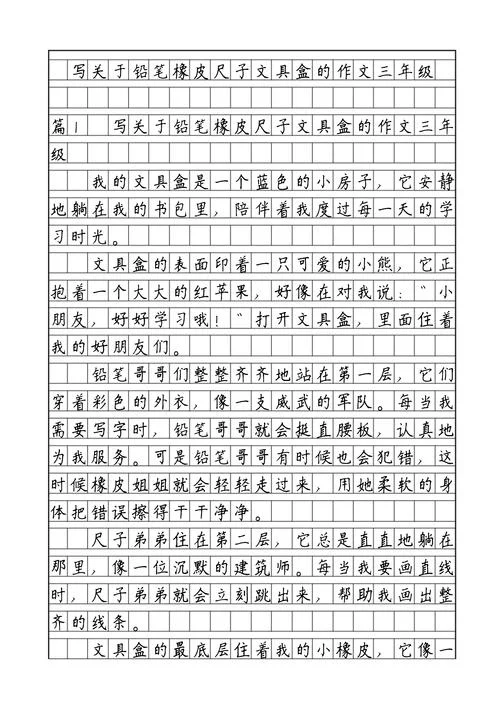 写关于铅笔橡皮尺子文具盒的作文三年级
篇1 写关于铅笔橡皮尺子文具盒的作文三年
级
我的文具盒是一个蓝色的小房子，它安静
地躺在我的书包里，陪伴着我度过每一天的学
习时光。
文具盒的表面印着一只可爱的小熊，它正
抱着一个大大的红苹果，好像在对我说：“小
朋友，好好学习哦！”打开文具盒，里面住着
我的好朋友们。
铅笔哥哥们整整齐齐地站在第一层，它们
穿着彩色的外衣，像一支威武的军队。每当我
需要写字时，铅笔哥哥就会挺直腰板，认真地
为我服务。可是铅笔哥哥有时候也会犯错，这
时候橡皮姐姐就会轻轻走过来，用她柔软的身
体把错误擦得干干净净。
尺子弟弟住在第二层，它总是直直地躺在
那里，像一位沉默的建筑师。每当我要画直线
时，尺子弟弟就会立刻跳出来，帮助我画出整
齐的线条。
文具盒的最底层住着我的小橡皮，它像一